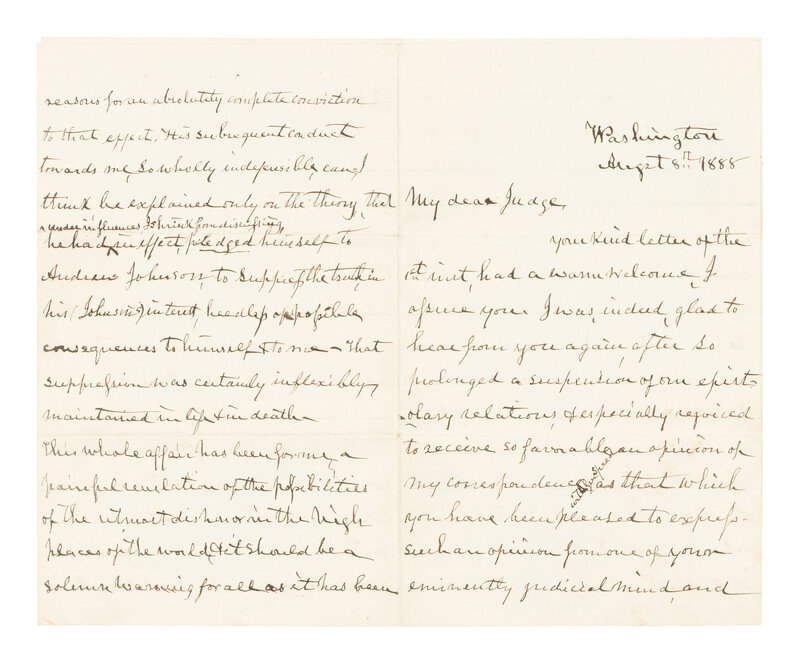 reasons for an absolutely complete conviction
to that effect. His subsequent conduct
towards me, so wholly indefensible, can I
think be explained only on the theory, that
under influences I shrink from discussing,
he had, in effect, pledged himself to
Andrew Johnson, to suppress the truth, in
his (Johnson's) interest, heedless of possible
consequences to himself & to me – That
suppression was certainly inflexibly
maintained in life & in death –
This whole affair has been for me, a
painful revelation of the possibilities
of the utmost dishonor in the high
places of the world, & it should be a
solemn warning for all as it has been
Washington
Augst 8th 1888
My dear Judge,
your kind letter of the
1st inst, had a warm welcome, I
assure you. I was, indeed, glad to
hear from you again, after so
prolonged a suspension of our epist-
olary relations, & especially rejoiced
to receive so favorable an opinion of
my correspondence with Judge as that which
you have been pleased to express.
such an opinion from one of your
eminently judicial mind, and